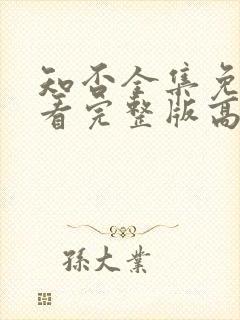 知否全集免
看完整版高
孫大業